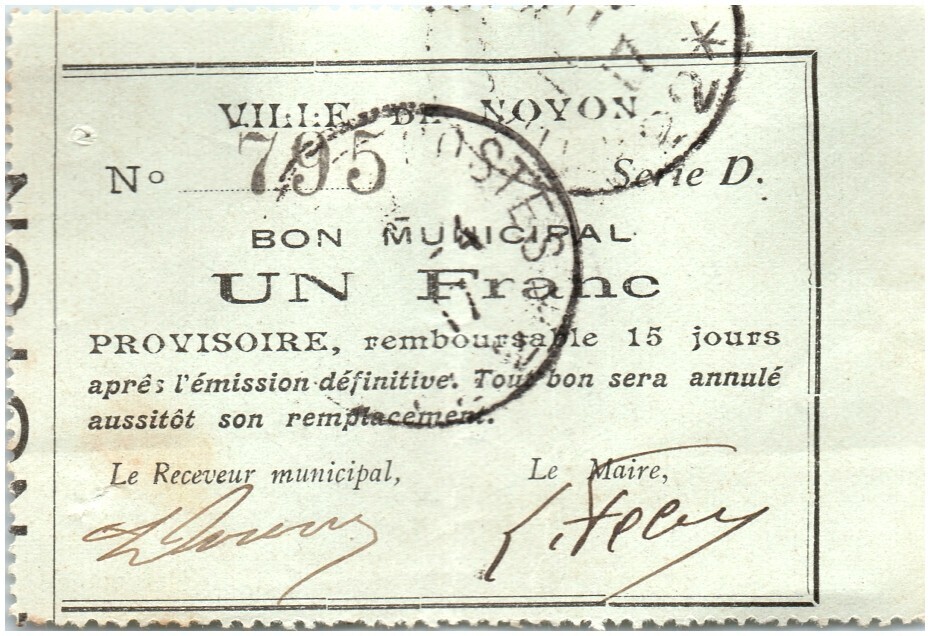 VILLE DE NOYON
No 795 Serie D.
BON MUNICIPAL
UN Franc
PROVISOIRE, remboursable 15 jours
après l'émission définitive. Tout bon sera annulé
aussitôt son remplacement.
Le Receveur municipal, Le Maire,
POSTES